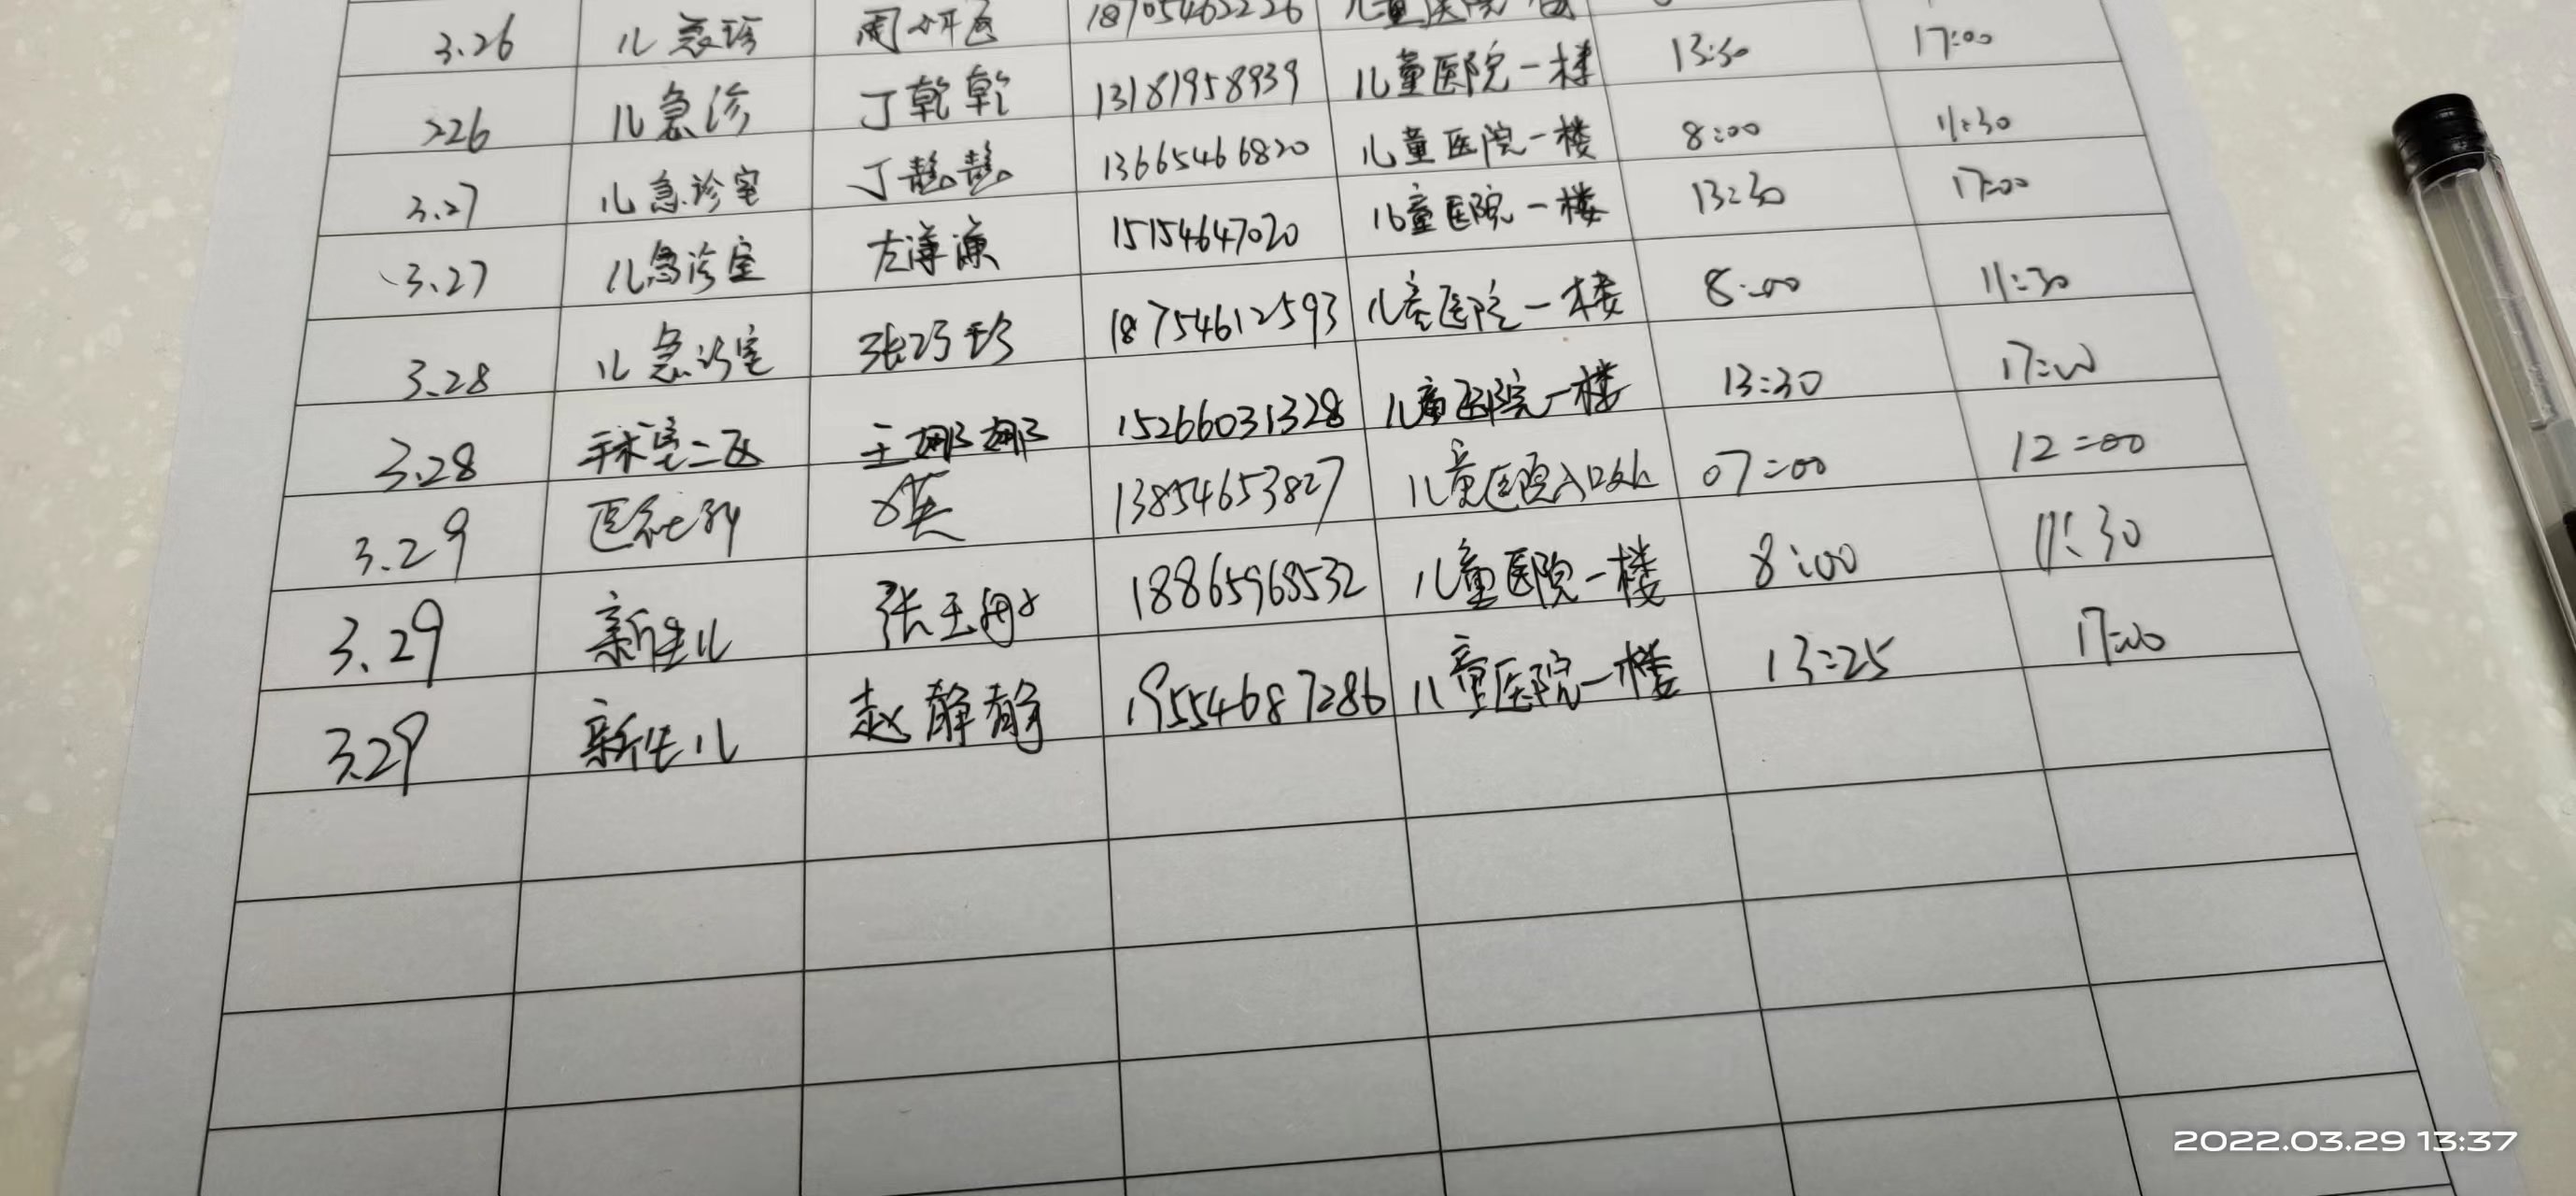 3.26 儿急诊 周 18705462226 儿童医院
326 儿急诊 丁乾乾 13181958939 儿童医院一楼 13:30 17:00
3.27 儿急诊室 丁慧慧 13665466820 儿童医院一楼 8:00 11:30
3.27 儿急诊室 左 15154647020 儿童医院一楼 13:30 17:00
3.28 儿急诊室 张巧珍 18754612593 儿童医院一楼 8:00 11:30
3.28 手术室二区 王娜娜 15266031328 儿童医院一楼 13:30 17:00
3.29 13854653827 儿童医院入口处 07:00 12:00
3.29 新生儿 张玉 18865968532 儿童医院一楼 8:00 11:30
3.29 新生儿 赵静静 19554687286 儿童医院一楼 13:25 17:00
2022.03.29 13:37